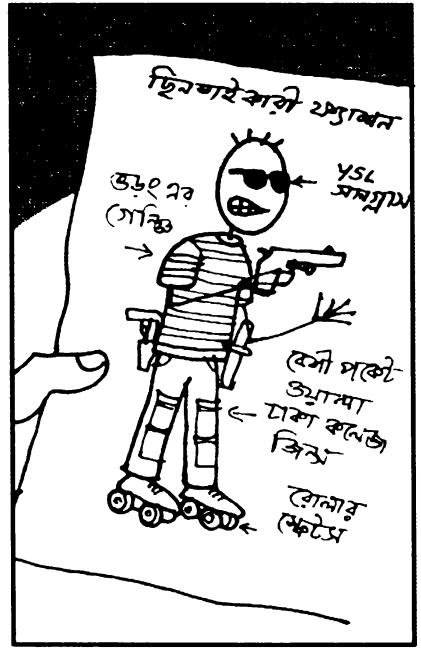 ছিনতাইকারী ফ্যাশন
YSL
সানগ্লাস
ভড়ং এর
গেঞ্জি
বেশী পকেট
ওয়ালা
ঢাকা কলেজ
জিন্স
রোলার
স্কেটস